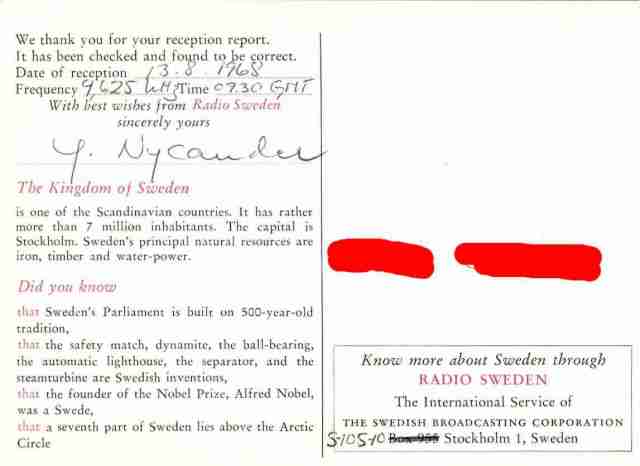 We thank you for your reception report.
It has been checked and found to be correct.
Date of reception 13.8.1968
Frequency 9,625 kHz Time 0730 GMT
With best wishes from Radio Sweden
sincerely yours
Y. Nycander
The Kingdom of Sweden
is one of the Scandinavian countries. It has rather
more than 7 million inhabitants. The capital is
Stockholm. Sweden's principal natural resources are
iron, timber and water-power.
Did you know
that Sweden's Parliament is built on 500-year-old
tradition,
that the safety match, dynamite, the ball-bearing,
the automatic lighthouse, the separator, and the
steamturbine are Swedish inventions,
that the founder of the Nobel Prize, Alfred Nobel,
was a Swede,
that a seventh part of Sweden lies above the Arctic
Circle
Know more about Sweden through
RADIO SWEDEN
The International Service of
THE SWEDISH BROADCASTING CORPORATION
S-105 10 Box 955 Stockholm 1, Sweden